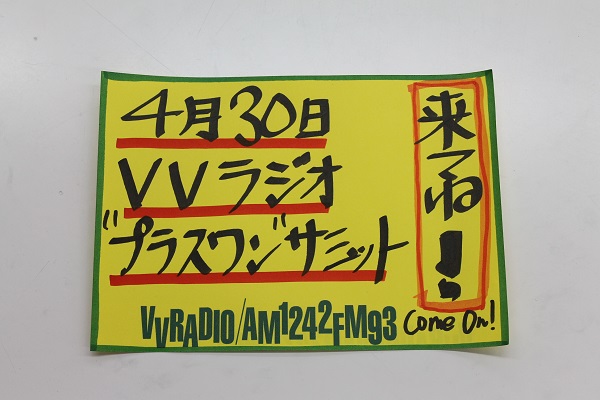 4月30日
VVラジオ
"プラスワン"サミット
来てね!
VVRADIO/AM1242FM93
Come On!